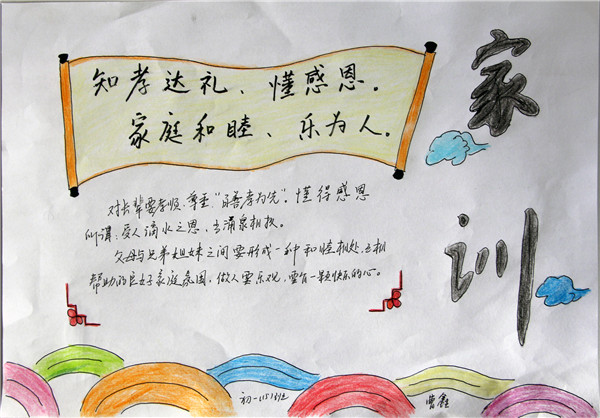 家训
知孝达礼、懂感恩。
家庭和睦、乐为人。
对长辈要孝顺,尊重"百善孝为先"。懂得感恩
所谓:受人滴水之恩,当涌泉相报。
父母与兄弟姐妹之间要形成一种和睦相处、互相
帮助的良好家庭氛围,做人要乐观,要有一颗快乐的心。
初一(15)班 曹鑫